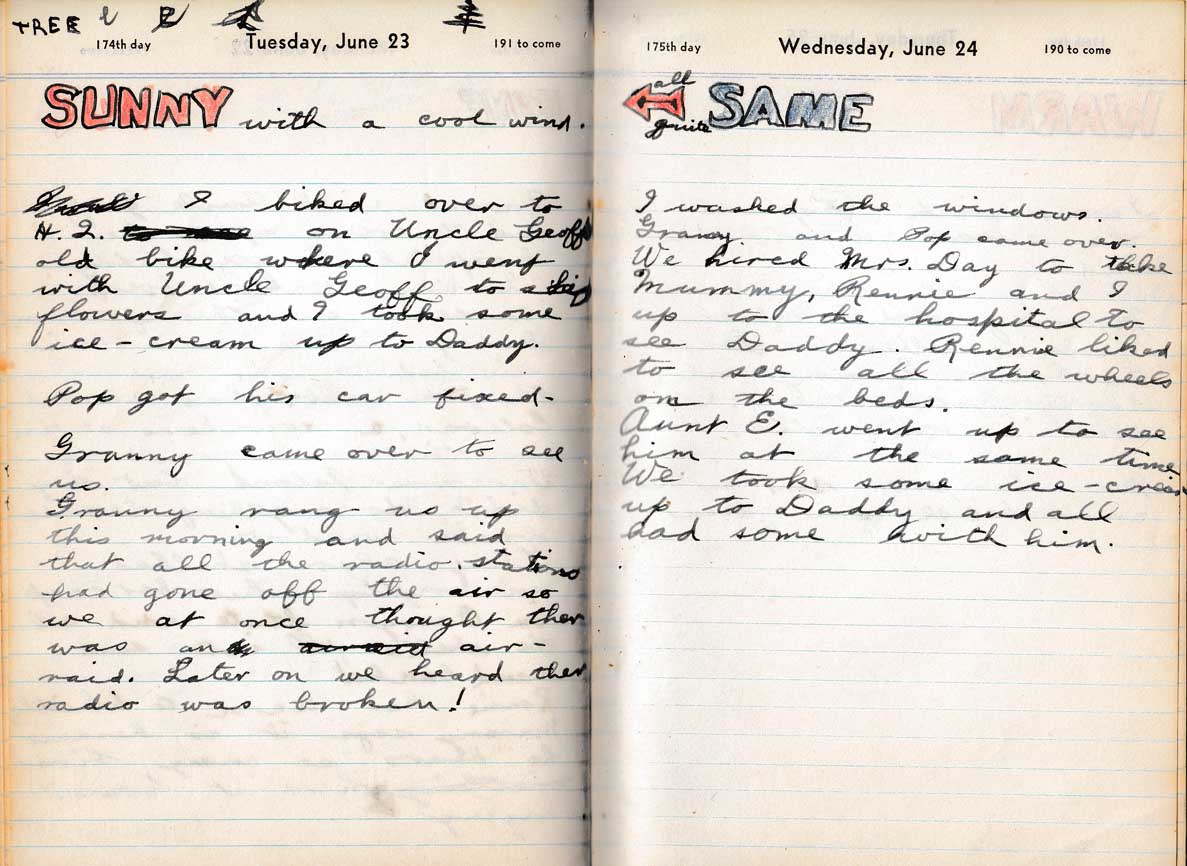 TREE
174th day
Tuesday, June 23
191 to come
SUNNY with a cool wind.
I biked over to
H.Q. on Uncle Geoff
old bike where I went
with Uncle Geoff to ship
flowers and I took some
ice-cream up to Daddy.
Pop got his car fixed-
Granny came over to see
us.
Granny rang us up
this morning and said
that all the radio stations
had gone off the air so
we at once thought ther
was an air-
raid. Later on we heard ther
radio was broken!
175th day
Wednesday, June 24
190 to come
all
quite
SAME
I washed the windows.
Granny and Pop came over.
We hired Mrs. Day to take
Mummy, Rennie and I
up to the hospital to
see Daddy. Rennie liked
to see all the wheels
on the beds.
Aunt E. went up to see
him at the same time
We took some ice-cream
up to Daddy and all
had some with him.